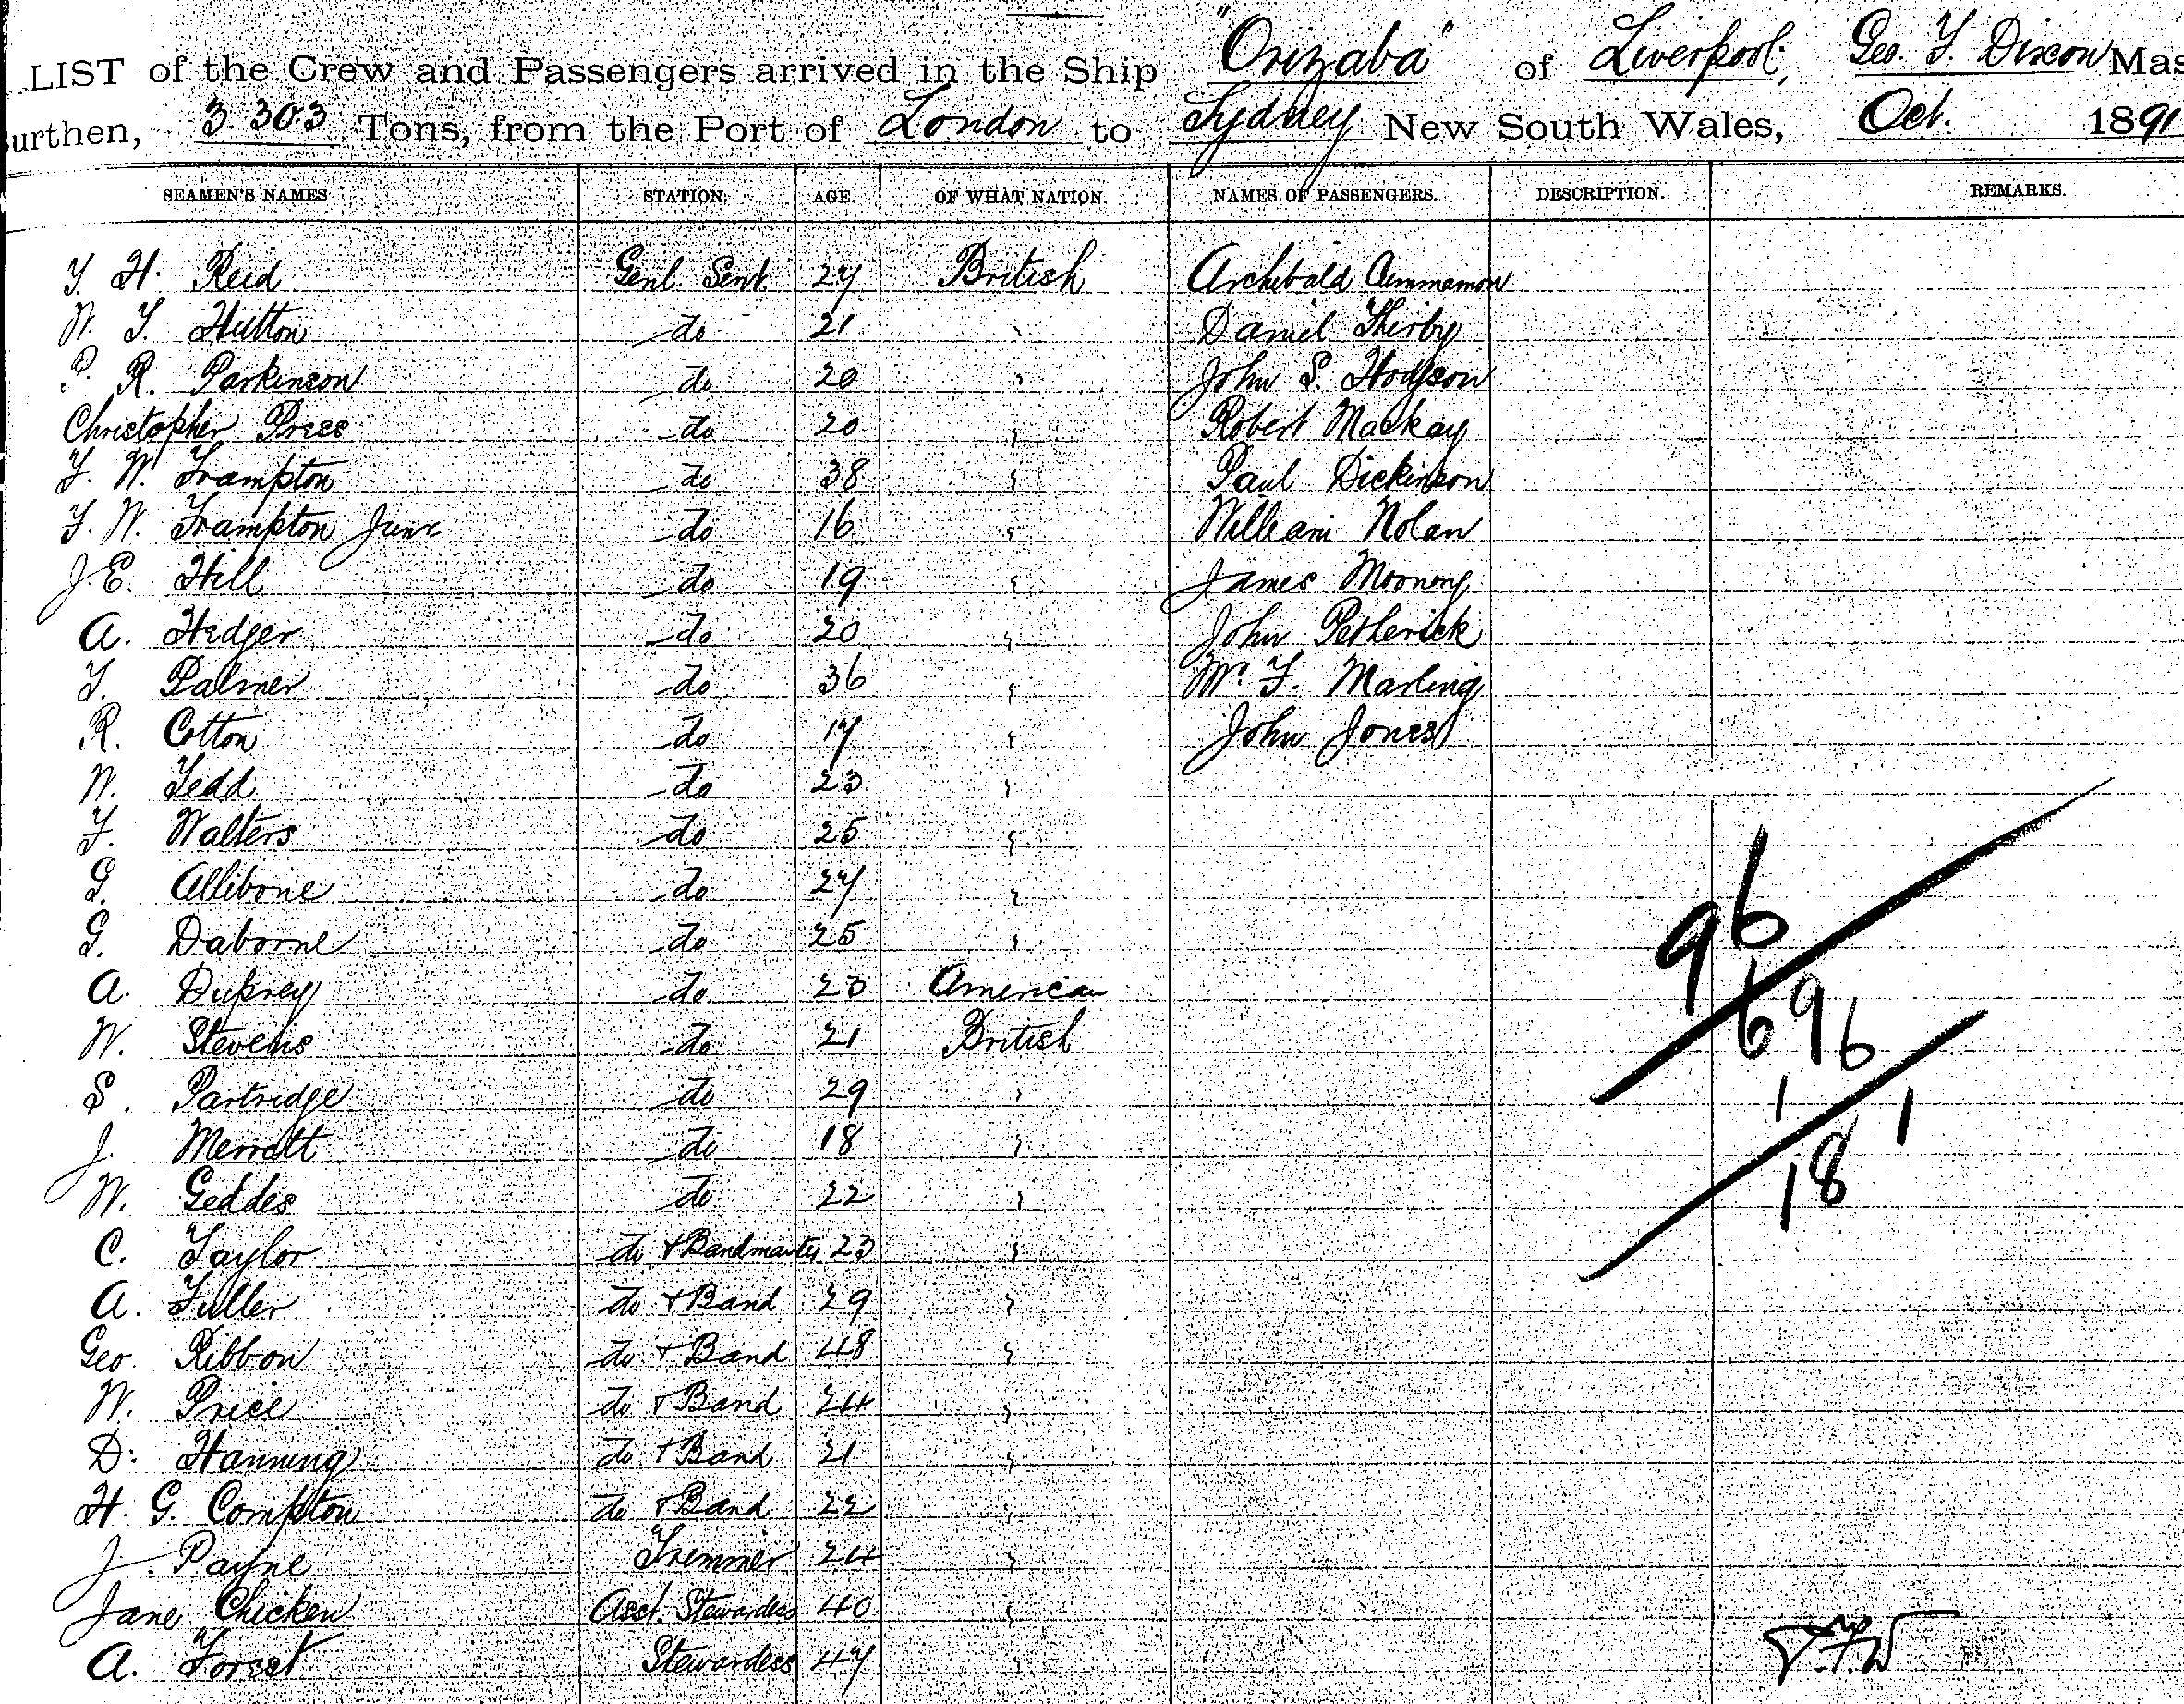 LIST of the Crew and Passengers arrived in the Ship "Orizaba" of Liverpool, Geo. F. Dixon Mas
urthen, 3.303 Tons, from the Port of London to Sydney New South Wales, Oct. 1891
SEAMEN'S NAMES STATION. AGE. OF WHAT NATION. NAMES OF PASSENGERS. DESCRIPTION. REMARKS.
H. Reid Genl. Servt. 27 British Archibald
W. Hutton do 21 " Daniel
P. R. Parkinson do 20 " John S. Hodgson
Christopher Press do 20 " Robert Mackay
F. W. Frampton do 38 " Paul Dickinson
F. W. Frampton Junr do 16 " William Nolan
J. E. Hill do 19 " James Mooney
A. Hedger do 20 " John Petherick
T. Palmer do 36 " Mr. F. Marling
R. Cotton do 17 " John Jones
W. Tedd do 23 "
F. Walters do 25 "
G. Allibone do 27 "
G. Daborne do 25 "
A. Duprey do 23 American
W. Stevens do 21 British
S. Partridge do 29 "
J. Merratt do 18 "
W. Geddes do 22 "
C. Taylor do + Bandmaster 23 "
A. Fuller do + Band 29 "
Geo. Ribbon do + Band 48 "
W. Price do + Band 24 "
D. Hanning do + Band 21 "
H. G. Compton do + Band 22 "
J. Payne Trimmer 24 "
Jane Chicken Asst. Stewardess 40 "
A. Forest Stewardess 47 "
96
696
1 1
18